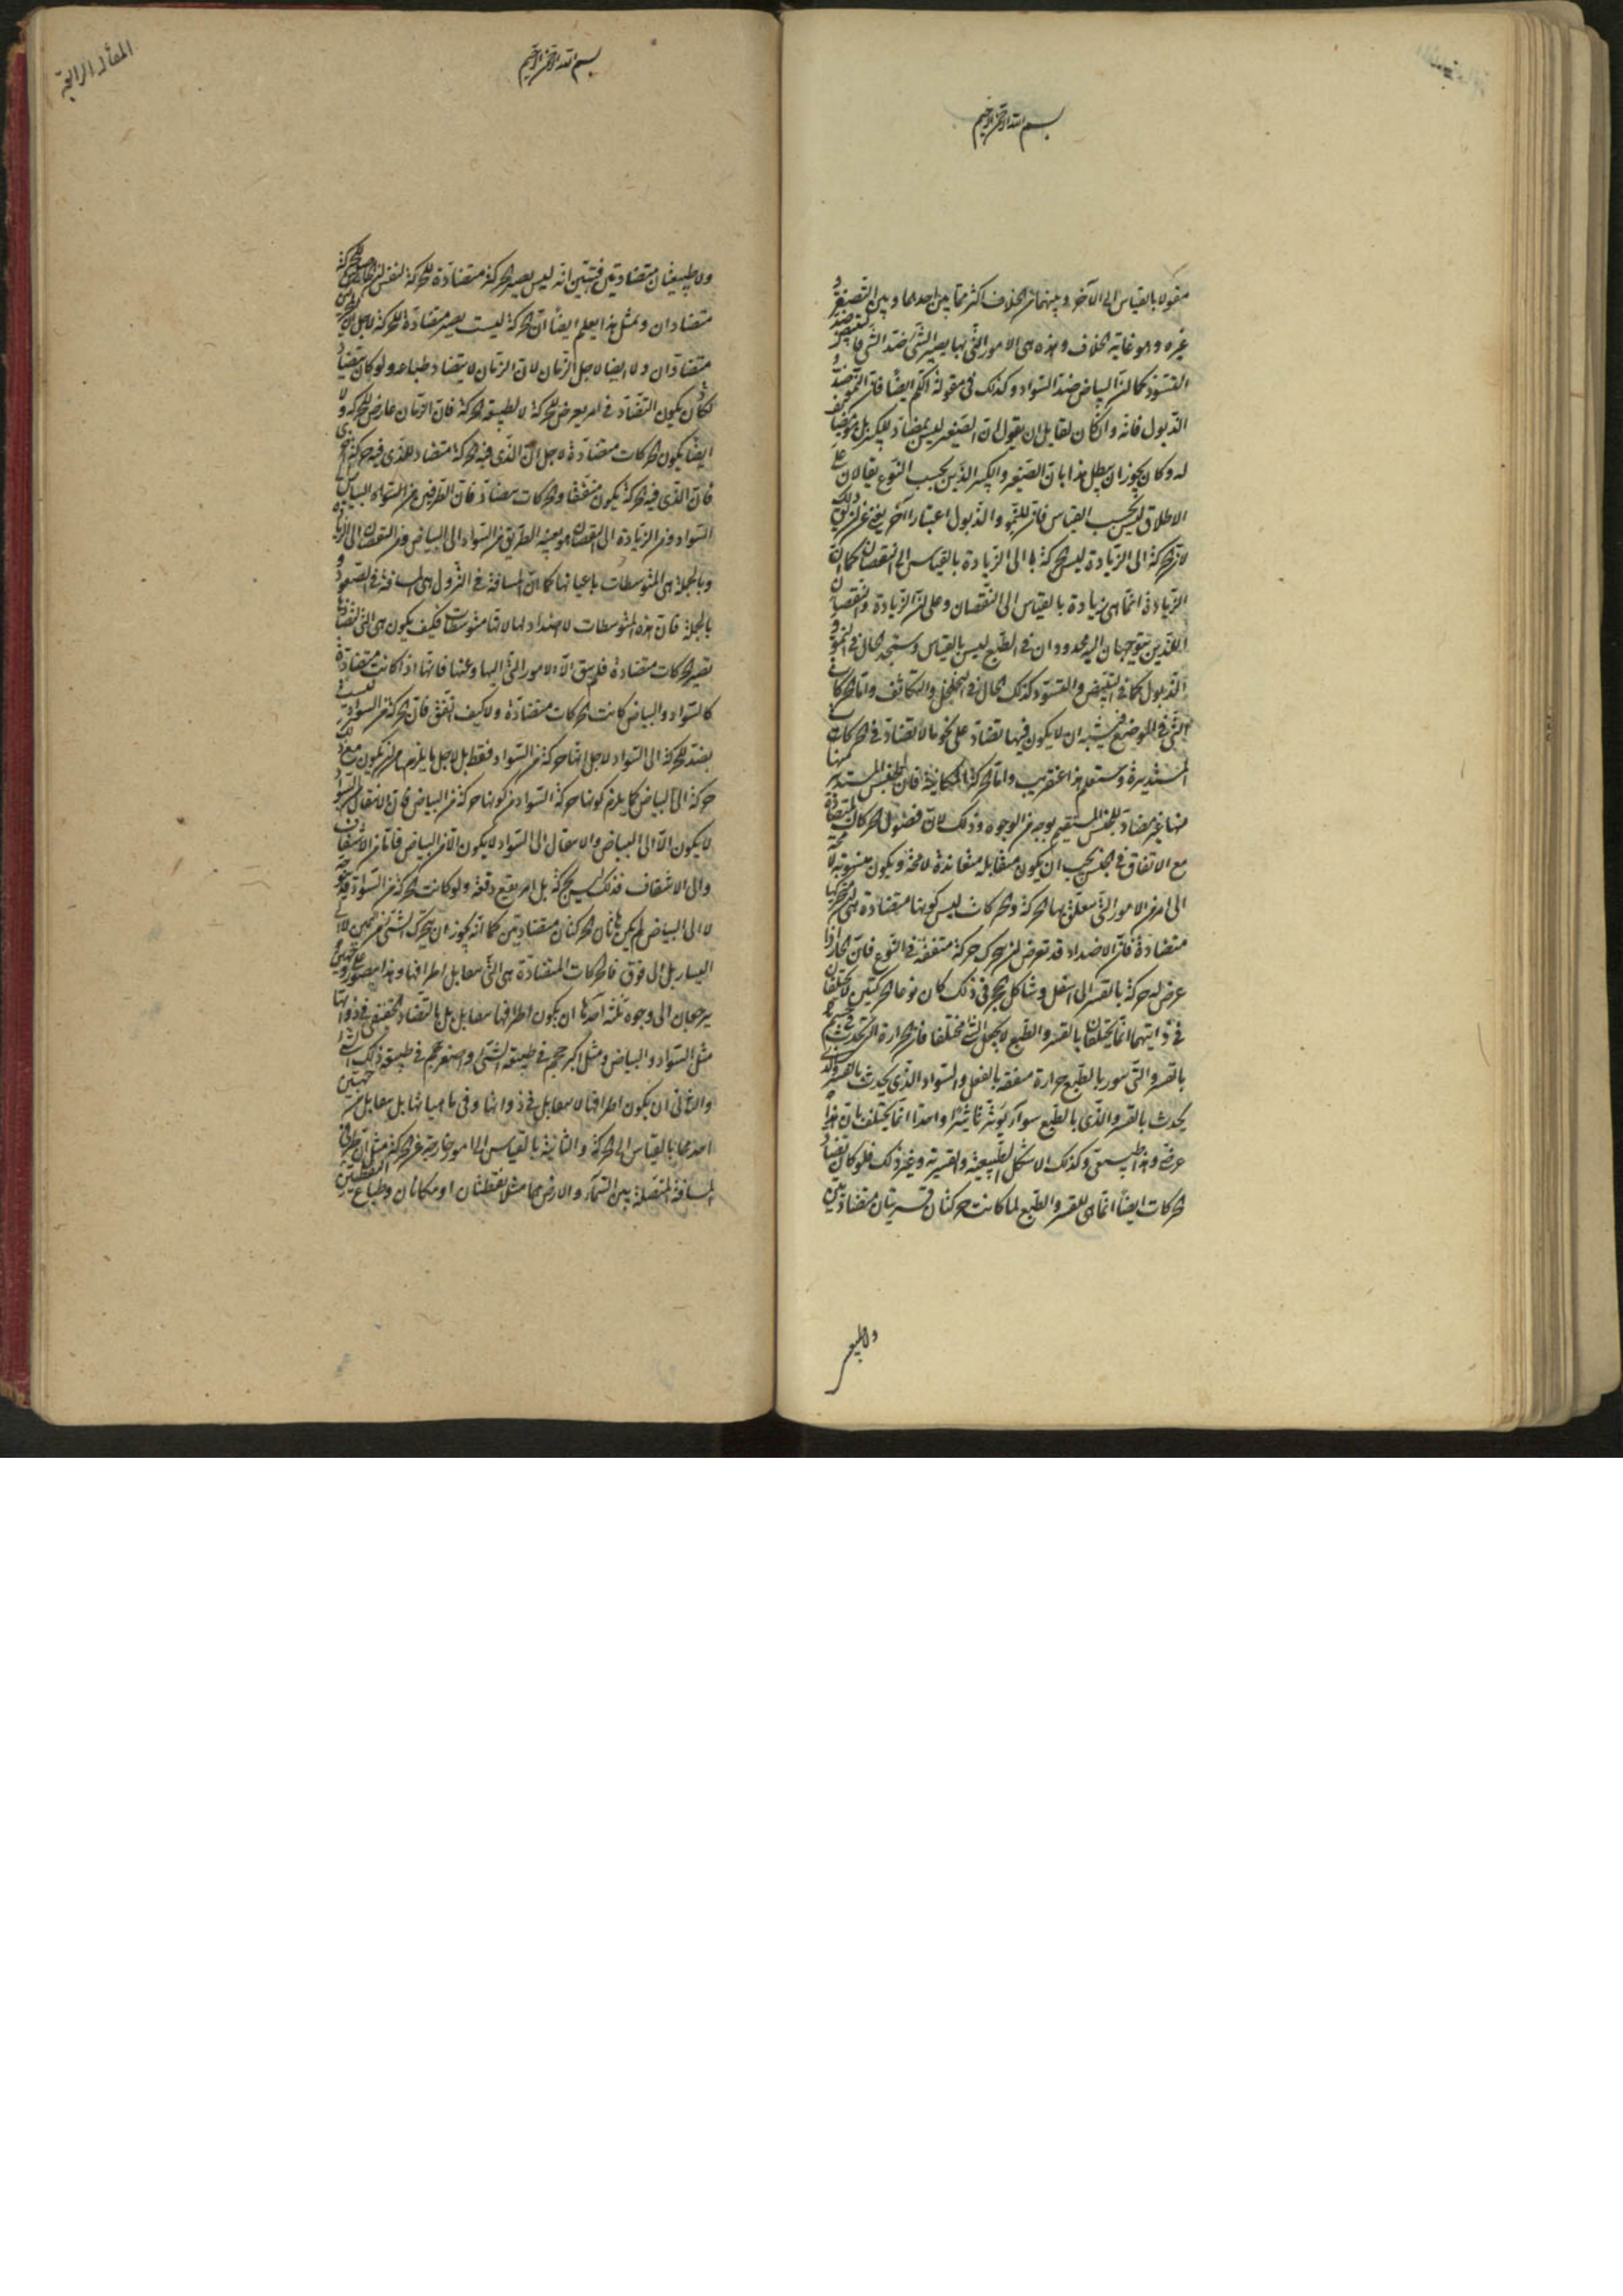 بسم الله الرحمن الرحيم
مقولا بالقياس الى الآخر و بينهما من الخلاف اكثر مما بين احدهما و بين التصغير و
غيره و هو غاية الخلاف و هذه هى الامور التى بها يصير الشئ ضد الشئ فالتبيض ضد
التسود كما ان البياض ضد السواد و كذلك فى مقولة الكم ايضا فان النمو ضد
الذبول فانه و ان كان لقايل ان يقول ان الصغير ليس بمضاد للكبير بل هو مضايف
له و كان يجوز ان يبطل هذا بان الصغير و الكبير الذين بحسب النوع يقالان على
الاطلاق ليس بحسب القياس فان للنمو و الذبول اعتبارا آخر يغنى عن ذلك
لان الحركة الى الزيادة ليس حركة الى الزيادة بالقياس الى النقصان كما ان
الزيادة انما هى زيادة بالقياس الى النقصان و على ان الزيادة و النقصان
اللذين يتوجهان اليه محدودان فى الطبع ليس بالقياس و ستجد الحال فى النمو و
الذبول كما فى التبيض و التسود كذلك الحال فى التخلخل و التكاثف و اما الحركات
التى فى الموضع فيشبه ان لا يكون فيها تضاد على نحو ما لا تضاد فى الحركات
المستديرة و ستعلم هذا عنقريب و اما الحركة المكانية فان الجنس المستدير منها
منها غير مضاد للجنس المستقيم بوجه من الوجوه و ذلك لان فصول الحركات المتضادة
مع الاتفاق فى الجنس يجب ان يكون متقابلة متعاندة لا محة و يكون منسوبة لا محة
الى امر من الامور التى تتعلق بها الحركة و الحركات ليس كونها متضادة هى ان متحركها
متضادة فان الاضداد قد تعرض لها ان يتحرك حركة متفقة فى النوع فان الحار اذا
عرض له حركة بالقسر الى اسفل و شاكل الحجر فى ذلك كان نوعا الحركتين لا يختلفان
فى ذاتيهما انما يختلفان بالقسر و الطبع لا يجعل الشئ مختلفا فان الحرارة التى تحدث فى جسم
بالقسر و التى تنور بالطبع حرارة متفقة بالفعل و السواد الذى يحدث بالقسر و الذى
يحدث بالقسر و الذى بالطبع سواد يؤثر تاثيرا واحدا انما يختلف بان هذا
عرضى و هذا طبيعى و كذلك الاشكال الطبيعية و القسرية و غير ذلك فلو كان تضاد
الحركات ايضا انما هى للقسر و الطبع لما كانت حركتان قسريتان متضادتين
المقالة الرابعة
بسم الله الرحمن الرحيم
ولا طبيعيتان متضادتين فتبين انه ليس يصير الحركة متضادة للحركة لنفس
متضادان و بمثل هذا يعلم ايضا ان الحركة ليست يصير متضادة للحركة لاجل ان
متضادان و لا ايضا لاجل الزمان لان الزمان لا يتضاد طباعه و لو كان يتضاد
لكان يكون التضاد فى امر يعرض للحركة لا لطبيعة الحركة فان الزمان عارض للحركة و لا
ايضا يكون الحركات متضادة لاجل ان الذى فيه الحركة متضاد للذى فيه حركة اخرى
فان الذى فيه الحركة يكون متفقا و الحركات متضادة فان الطريق من السواد البياض
السواد و من الزيادة الى النقصان هو بعينه الطريق من السواد الى البياض و من النقصان الى الزيادة
و بالجملة هى المتوسطات باعيانها كما ان المسافة فى النزول هى المسافة فى الصعود و
بالجملة فان هذه المتوسطات لا اضداد لها لانها متوسطات فكيف يكون هى التى لتضادها
تصير الحركات متضادة فلم يبق الا الامور التى اليها و عنها فانها اذا كانت متضادة
كالسواد و البياض كانت الحركات متضادة و لا كيف اتفق فان الحركة من السواد ليست
بضد للحركة الى السواد لاجل انها حركة من السواد فقط بل لاجل ما يلزم من ان يكون مع ذلك
حركة الى البياض كما يلزم كونها حركة السواد من كونها حركة من البياض فان الانتقال من السواد
لا يكون الا الى البياض و الانتقال الى السواد لا يكون الا من البياض فاما من الاشفاف
و الى الاشفاف فذلك ليس بحركة بل امر يقع دفعة و لو كانت الحركة من السواد قد يتوجه
لا الى البياض لم يكن هاتان الحركتان متضادتين كما انه يجوز ان يتحرك الشئ من اليمين لا الى
اليسار بل الى فوق فالحركات المتضادة هى التى تتقابل اطرافها و هذا يتصور على جهتين
يرجعان الى وجوه ثلثة احدها ان يكون اطرافها تتقابل بل بالتضاد الحقيقى فى ذواتها
مثل السواد و البياض و مثل اكبر حجم فى طبيعة الشئ و اصغر حجم فى طبيعة ذلك الشئ
و الثانى ان يكون اطرافها لا تتقابل فى ذواتها و فى ماهياتها بل تتقابل من جهتين
احدهما بالقياس الى الحركة و الثانية بالقياس الى امور خارجة عن الحركة مثل ان طرفى
المسافة المتصلة بين السماء و الارض هما مثلا نقطتان او مكانان و طباع النقطتين